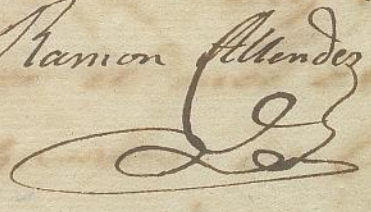 Ramon Allendez